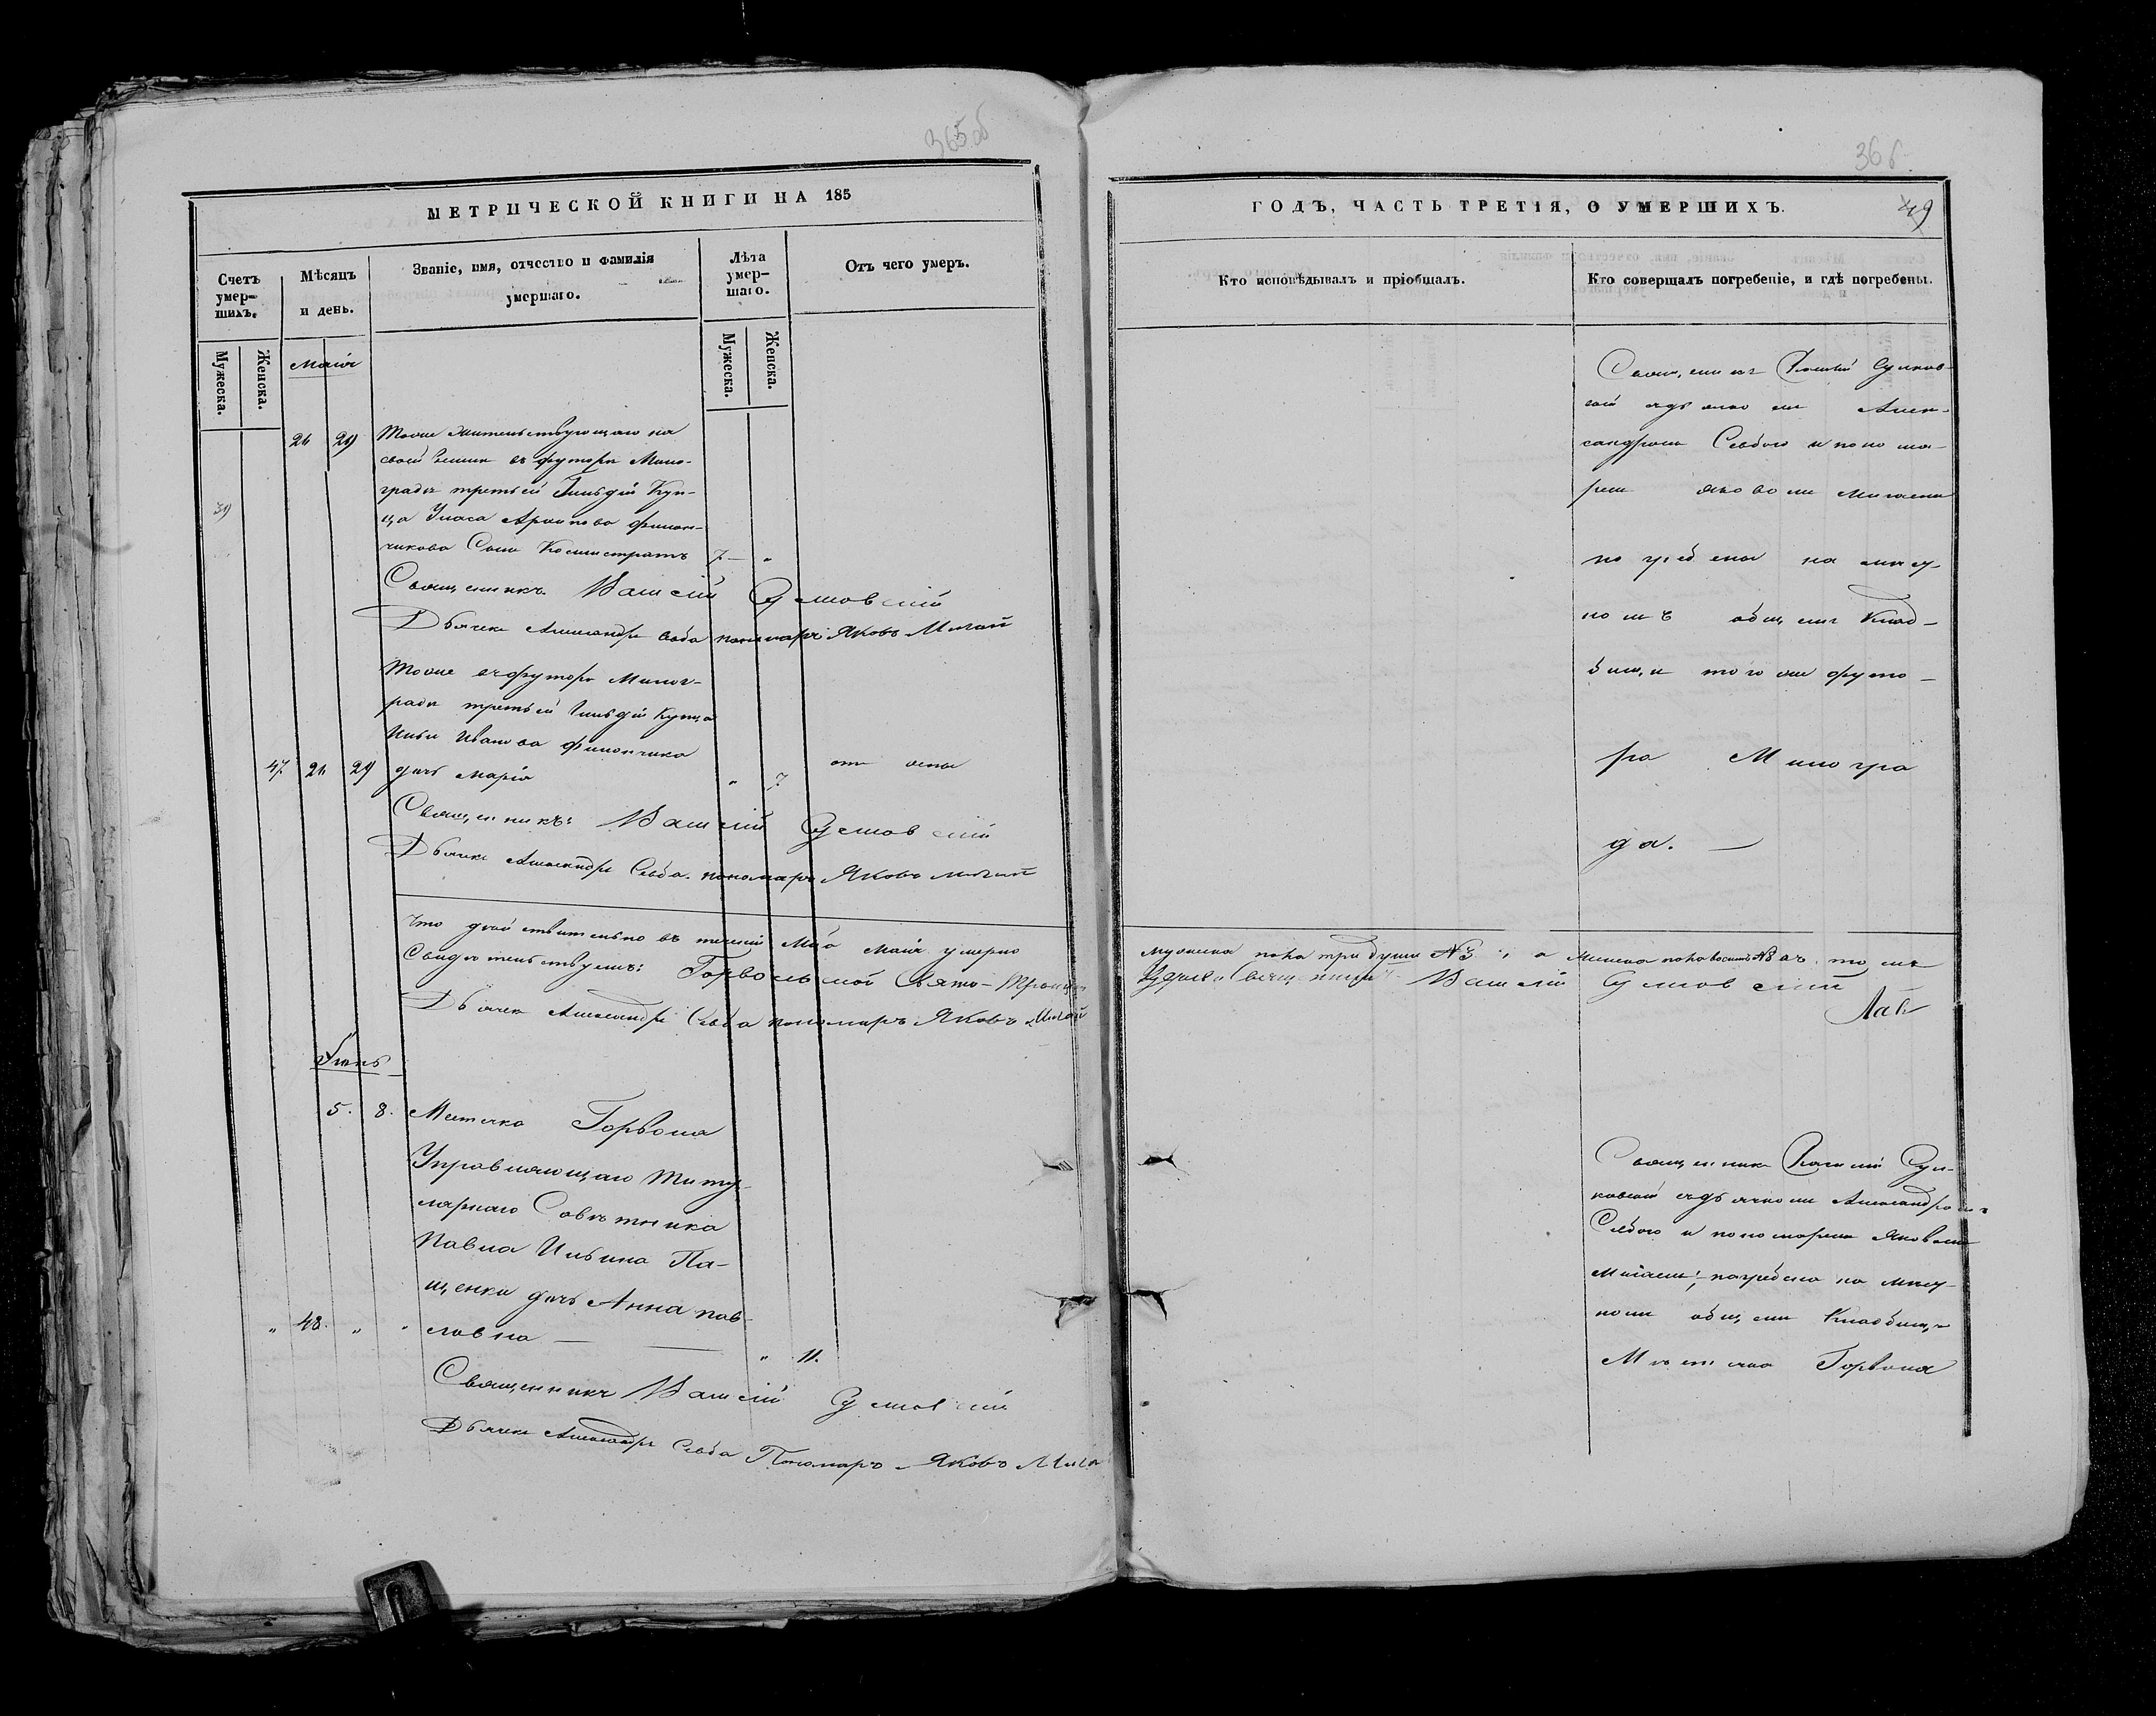 365об
МЕТРИЧЕСКОЙ КНИГИ НА 185
Счетъ умер-шихъ.
Мѣсяцъ и день.
Званіе, имя, отчество и фамилія умершаго.
Лѣта умер-шаго.
Отъ чего умеръ.
Мужеска.
Женска.
Мужеска.
Женска.
Маія
26 29 Тоже жительствующаго на
своей земли въ футорѣ Мило-
градѣ третьей Гильдіи Куп-
39
ца Уласа Архипова Филон-
чикова Сынъ Калистратъ 7 — „
Священникъ Василій Сулковскій
Дьячекъ Александръ Савба пономарь Яковъ Мигай
Тоже въ футорѣ Милог-
радѣ третьей Гильдіи Купца
Ильи Иванова Филончика
47 26 29 дочь Марія „ 7 отъ оспы
Священникъ: Василій Сулковскій
Дьячекъ Александръ Савба. пономарь Яковъ Мигай
Что дѣйствительно въ теченіи Маія умерло
Свидѣтельствуемъ: Горвольской Свято-Троицкой
Дьячекъ Александръ Савба пономарь Яковъ Мигай
Іюнь
5. 8. Мѣстечка Горволя
Управляющаго Титу-
лярнаго Совѣтника
Павла Ильина Па-
щенка дочь Анна Пав-
„ 48. „ „ ловна — „ 11.
Священникъ Василій Сулковскій
Дьячекъ Александръ Савба Пономарь Яковъ Мига
366.
ГОДЪ, ЧАСТЬ ТРЕТІЯ, О УМЕРШИХЪ.
49
Кто исповѣдывалъ и пріобщалъ.
Кто совершалъ погребеніе, и гдѣ погребены.
Священникъ Василій Сулков-
скій съ дьячкомъ Алек-
сандромъ Савбою и понома-
ремъ Яковомъ Мигаемъ
погребены на
номъ общемъ Клад-
бищи того же футо-
ра Милогра
да. —
мужеска пола три души № 3 а женска пола восемь № 8 въ томъ
Церкви Священникъ Василій Сулковскій
Священникъ Василій Сул-
ковскій съ дьячкомъ Александромъ
Савбою и пономаремъ Яковомъ
Мигаемъ; погребена на
номъ общемъ Кладбищѣ
Мѣстечка Горволя